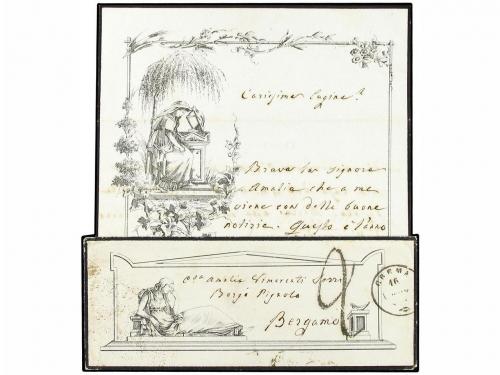 Carissima Cugina
Brava la signora
Amalia che a me
viene con delle buone
notizie. Questo è l'anno
Amalia Vimercati Sozzi
Borgo Pignolo
Bergamo
2
CREMA
16